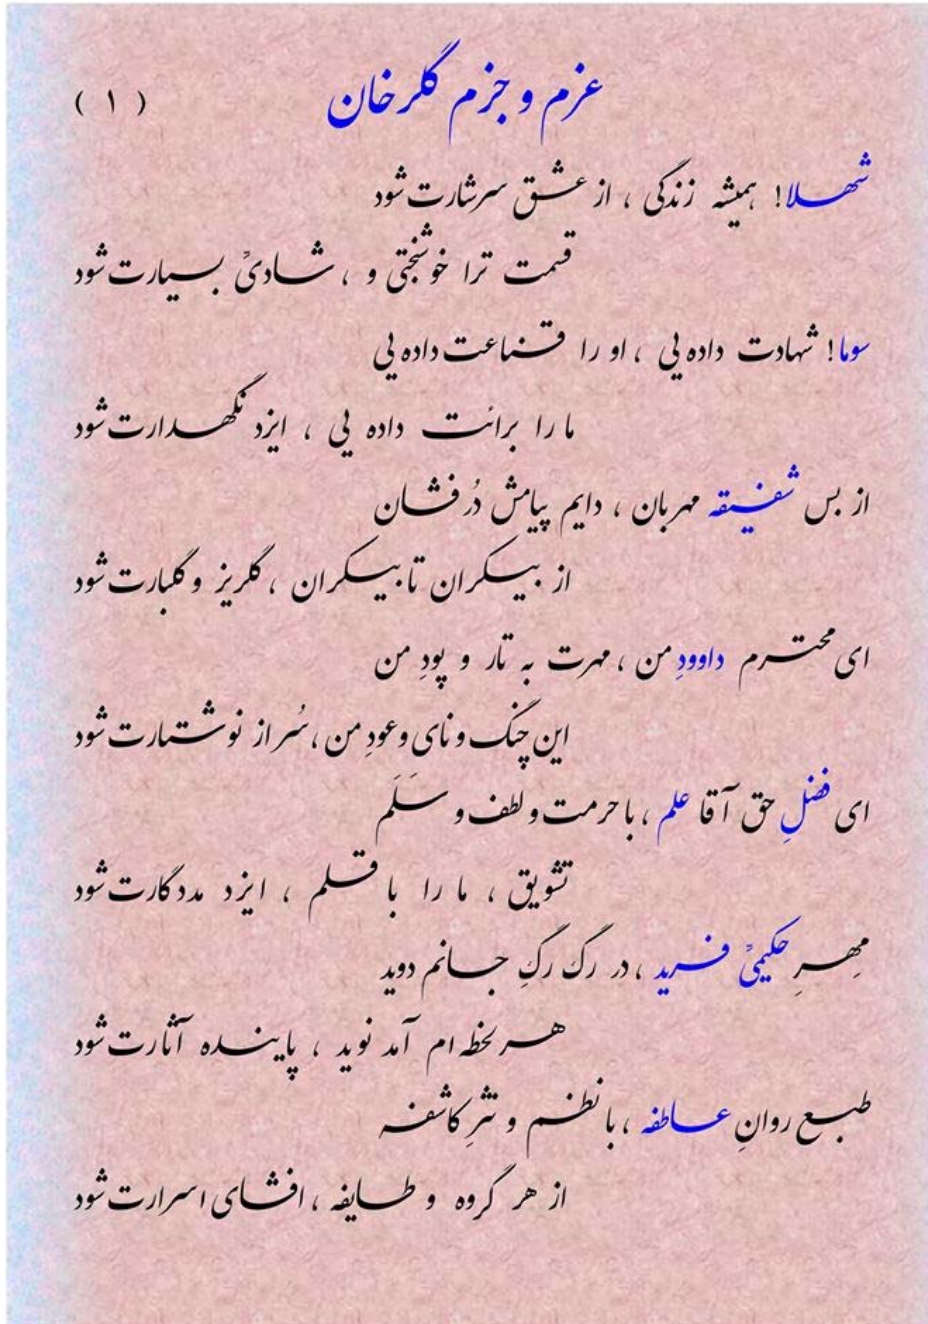 عزم و جزم گلرخان
( ۱ )
شهلا! همیشه زندگی ، از عشق سرشارت شود
قسمت ترا خوشبختی و ، شادیِّ بسیارت شود
سوما! شهادت داده یی ، او را قناعت داده یی
ما را برائت داده یی ، ایزد نگهدارت شود
از بس شفیقه مهربان ، دایم پیامش دُرفشان
از بیکران تا بیکران ، گلریز و گلبارت شود
ای محترم داوودِ من ، مهرت به تار و پودِ من
این چنگ و نای وعودِ من ، سُر از نوشتارت شود
ای فضلِ حق آقا علم ، با حرمت و لطف و سَلَم
تشویق ، ما را با قلم ، ایزد مددگارت شود
مِهرِ حکیمیِّ فرید ، در رگ رگِ جانم دوید
هر لحظه ام آمد نوید ، پاینده آثارت شود
طبع روانِ عاطفه ، با نظم و نثرِ کاشفه
از هر گروه و طایفه ، افشای اسرارت شود